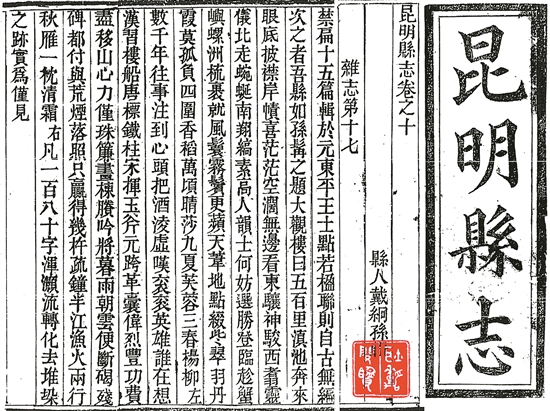 昆明縣志
昆明縣志卷之十
雜志第十七
縣人戴絅孫
禁扁十五篇輯於元東平王士點若楹聯則自古無編
次之者吾縣如孫髯之題大觀樓曰五百里滇池奔來
眼底披襟岸幘喜茫茫空濶無邊看東驤神駿西翥靈
儀北走蜿蜒南翔縞素高人韻士何妨選勝登臨趁蟹
嶼螺洲梳裹就風鬟霧鬢更蘋天葦地點綴些翠羽丹
霞莫孤負四圍香稻萬頃晴沙九夏芙蓉三春楊柳左
數千年往事注到心頭把酒凌虛嘆袞袞英雄誰在想
漢習樓船唐標鐵柱宋揮玉斧元跨革囊偉烈豐功費
盡移山心力僅珠簾畫棟賸吟將暮雨朝雲便斷碣殘
碑都付與荒煙落照只贏得幾杵疏鐘半江漁火兩行
秋雁一枕清霜右凡一百八十字渾灝流轉化去堆垛
之跡實爲僅見